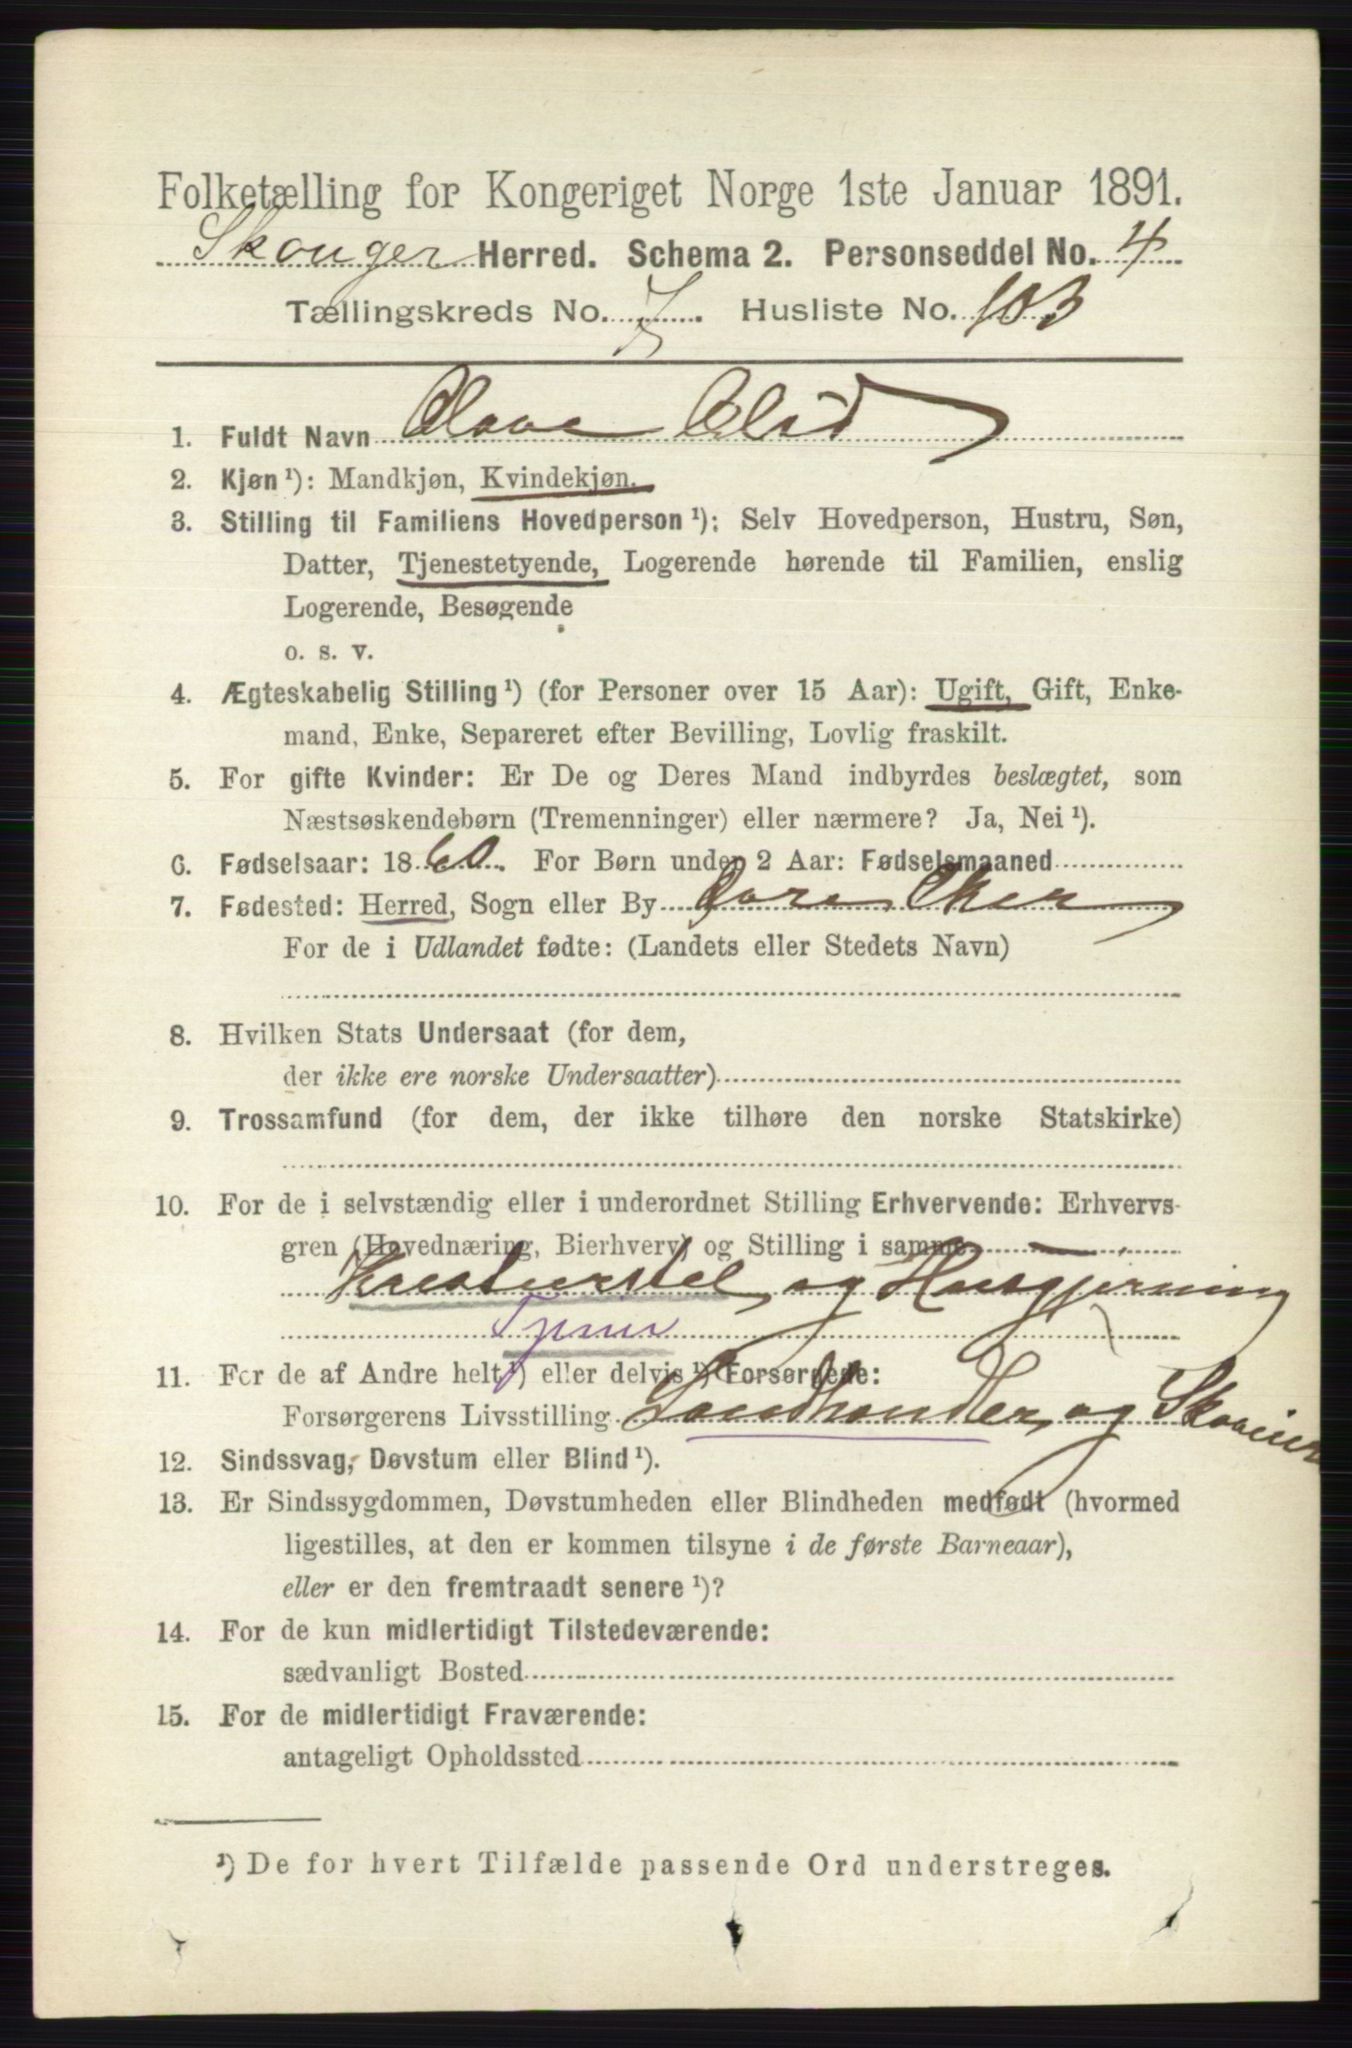 Folketælling for Kongeriget Norge 1ste Januar 1891.
Skouger Herred. Schema 2. Personseddel No. 4
Tællingskreds No. 7. Husliste No. 103
1. Fuldt Navn
2. Kjøn ¹): Mandkjøn, Kvindekjøn.
3. Stilling til Familiens Hovedperson ¹): Selv Hovedperson, Hustru, Søn,
Datter, Tjenestetyende, Logerende hørende til Familien, enslig
Logerende, Besøgende
o. s. v.
4. Ægteskabelig Stilling ¹) (for Personer over 15 Aar): Ugift, Gift, Enke-
mand, Enke, Separeret efter Bevilling, Lovlig fraskilt.
5. For gifte Kvinder: Er De og Deres Mand indbyrdes beslægtet, som
Næstsøskendebørn (Tremenninger) eller nærmere? Ja, Nei ¹).
6. Fødselsaar: 1860. For Børn under 2 Aar: Fødselsmaaned
7. Fødested: Herred, Sogn eller By Øvre Eker
For de i Udlandet fødte: (Landets eller Stedets Navn)
8. Hvilken Stats Undersaat (for dem,
der ikke ere norske Undersaatter)
9. Trossamfund (for dem, der ikke tilhøre den norske Statskirke)
10. For de i selvstændig eller i underordnet Stilling Erhvervende: Erhvervs-
gren (Hovednæring, Bierhverv) og Stilling i samme
Kreaturstel og Husgjerning
11. For de af Andre helt ¹) eller delvis ¹) Forsørgede:
Forsørgerens Livsstilling Landhandler og Skoeier
12. Sindssvag, Døvstum eller Blind ¹).
13. Er Sindssygdommen, Døvstumheden eller Blindheden medfødt (hvormed
ligestilles, at den er kommen tilsyne i de første Barneaar),
eller er den fremtraadt senere ¹)?
14. For de kun midlertidigt Tilstedeværende:
sædvanligt Bosted
15. For de midlertidigt Fraværende:
antageligt Opholdssted
¹) De for hvert Tilfælde passende Ord understreges.